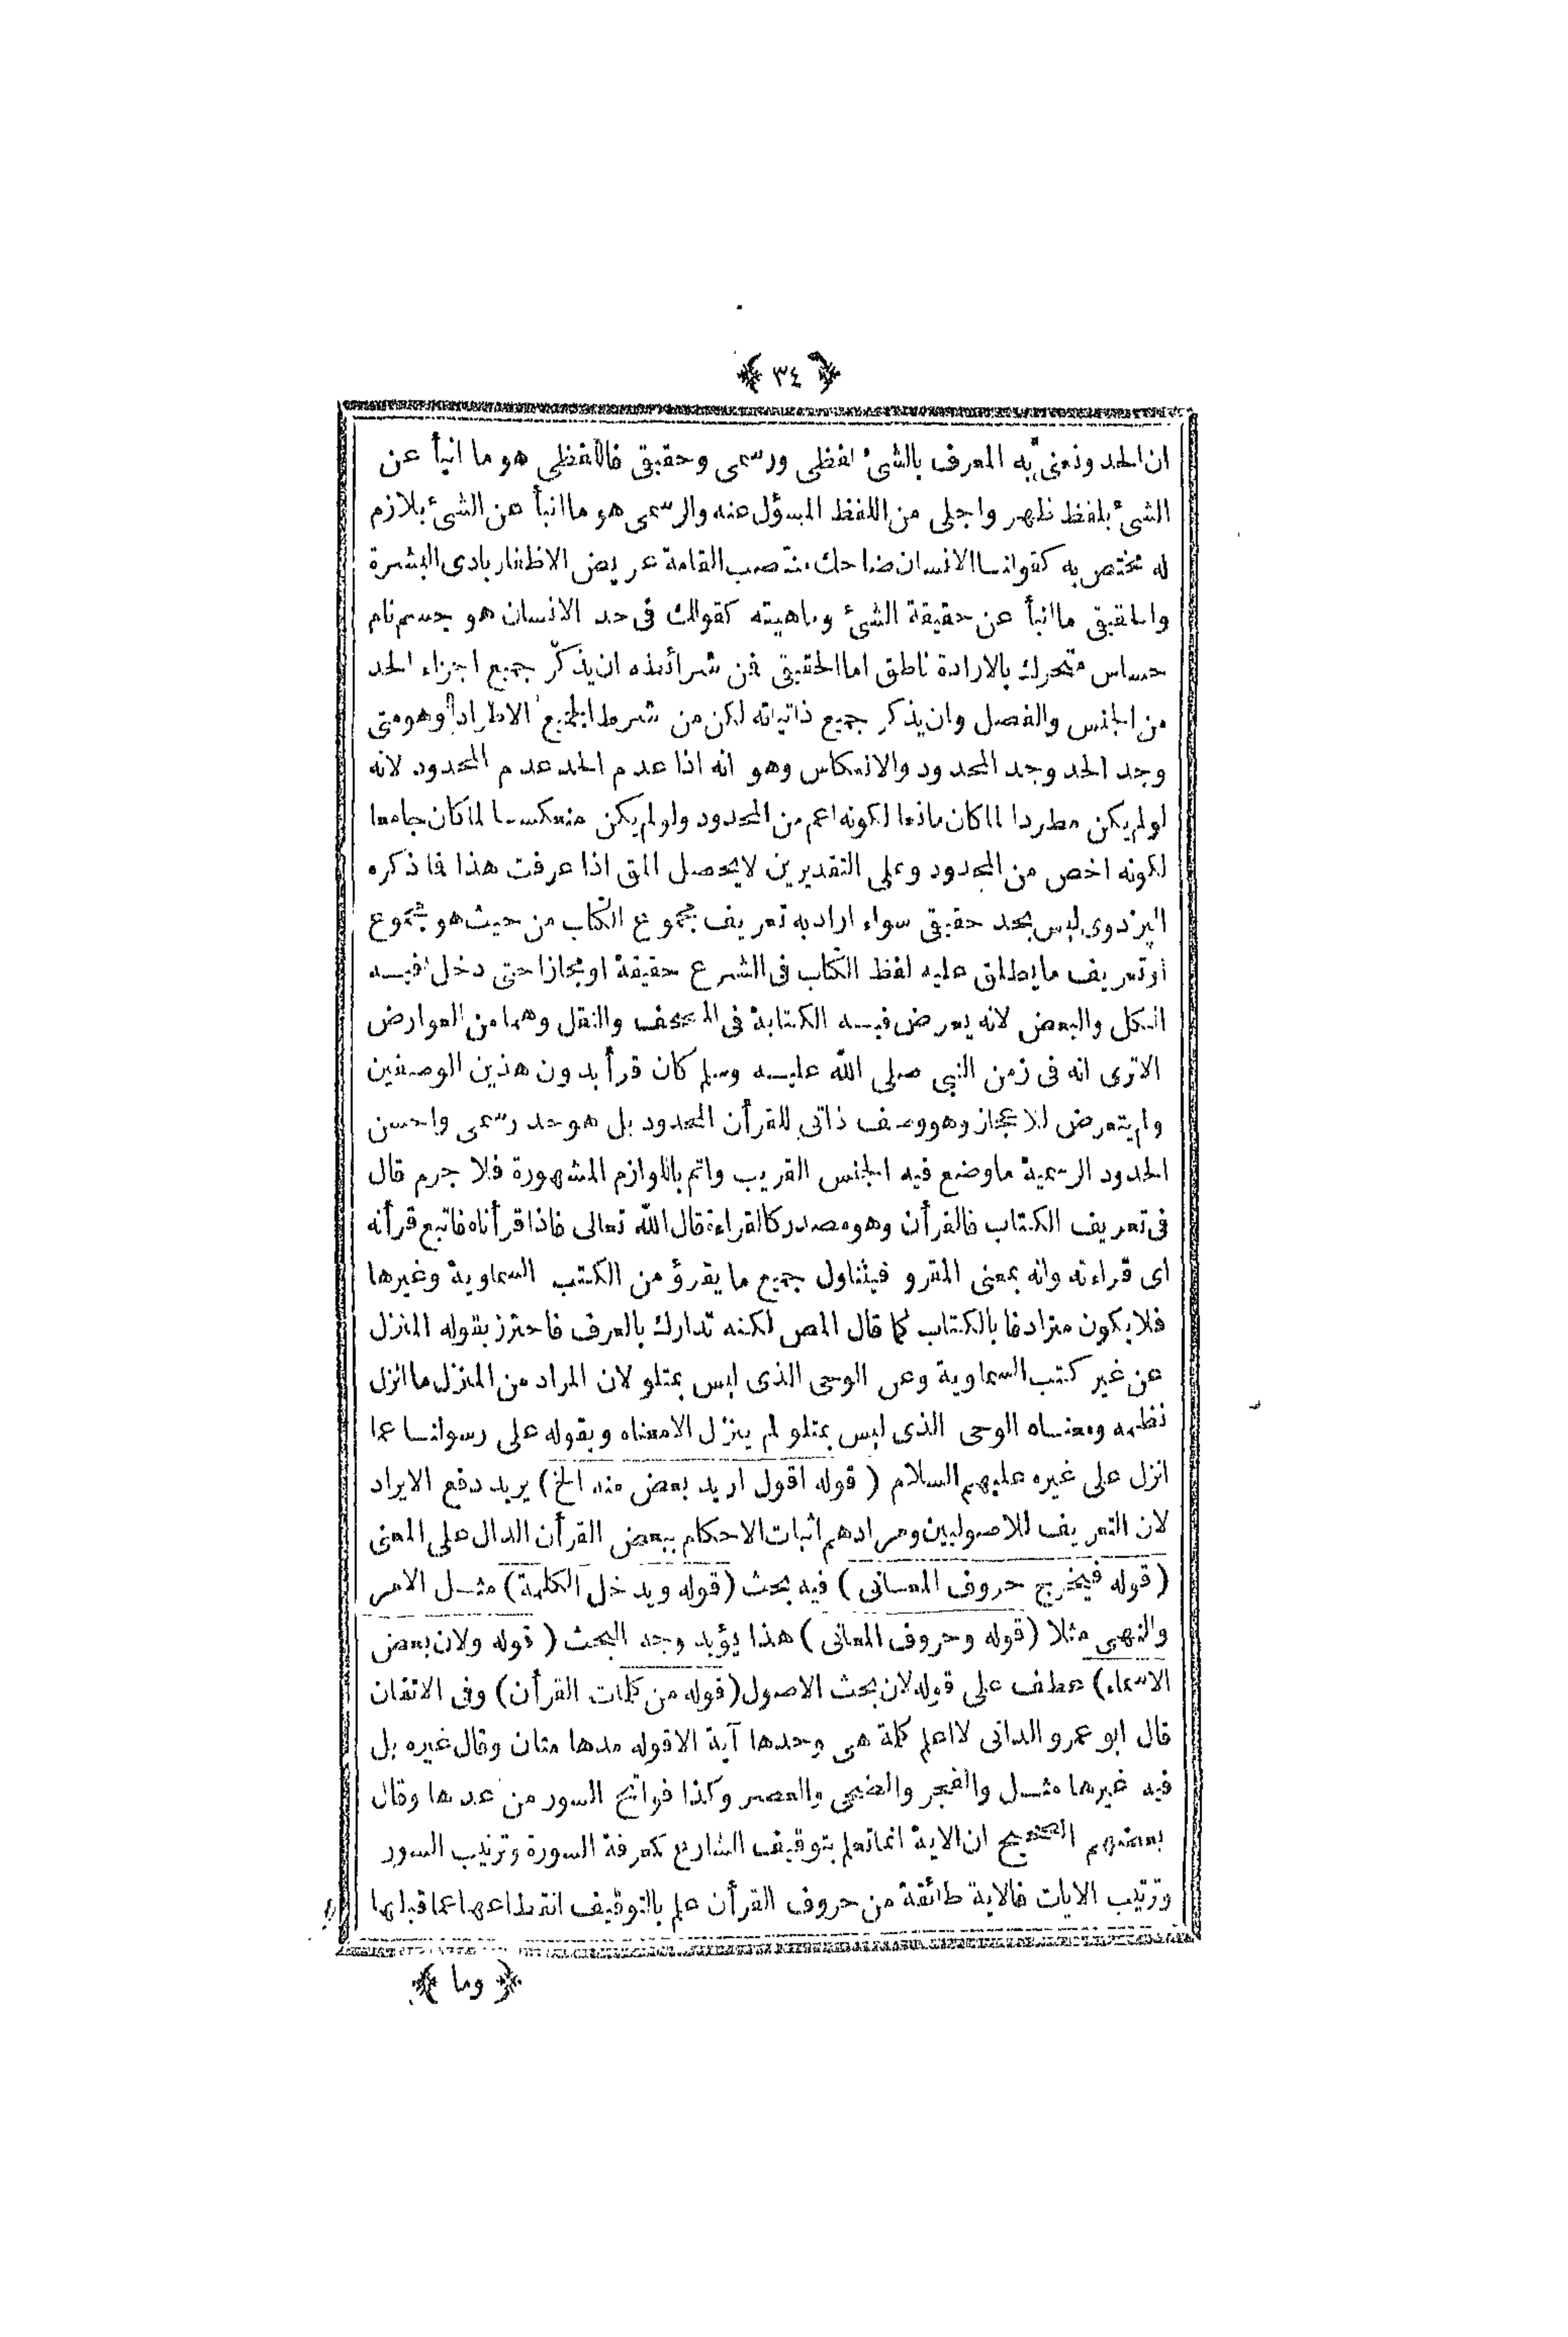 ﴿ ٣٤ ﴾
ان الحد ونعنى به المعرف بالشئ لفظى ورسمى وحقيقى فاللفظى هو ما انبأ عن
الشئ بلفظ ظهر واجلى من اللفظ المسؤل عنه والرسمى هو ما انبأ عن الشئ بلازم
له مختص به كقولنا الانسان ضاحك منتصب القامة عريض الاظفار بادى البشرة
والحقيقى ما انبأ عن حقيقة الشئ وماهيته كقولك فى حد الانسان هو جسم نام
حساس متحرك بالارادة ناطق اما الحقيقى فمن شرائطه ان يذكر جميع اجزاء الحد
من الجنس والفصل وان يذكر جميع ذاتياته لكن من شرط الجميع الاطراد وهو متى
وجد الحد وجد المحدود والانعكاس وهو انه اذا عدم الحد عدم المحدود لانه
لو لم يكن مطردا لما كان مانعا لكونه اعم من المحدود ولو لم يكن منعكسا لما كان جامعا
لكونه اخص من المحدود وعلى التقديرين لا يحصل المق اذا عرفت هذا فما ذكره
البزدوى ليس بحد حقيقى سواء اراد به تعريف مجموع الكتاب من حيث هو مجموع
او تعريف ما يطلق عليه لفظ الكتاب فى الشرع حقيقة او مجازا حتى دخل فيه
الكل والبعض لانه يعرض فيه الكتابة فى المصحف والنقل وهما من العوارض
الاترى انه فى زمن النبى صلى الله عليه وسلم كان قرأ بدون هذين الوصفين
ولم يتعرض للاعجاز وهو وصف ذاتى للقرأن المحدود بل هو حد رسمى واحسن
الحدود الرسمية ما وضع فيه الجنس القريب واتم باللوازم المشهورة فلا جرم قال
فى تعريف الكتاب فالقرأن وهو مصدر كالقراءة قال الله تعالى فاذا قرأناه فاتبع قرأنه
اى قراءته وانه بمعنى المقرو فيتناول جميع ما يقرؤ من الكتب السماوية وغيرها
فلا يكون مترادفا بالكتاب كما قال المص لكنه تدارك بالعرف فاحترز بقوله المنزل
عن غير كتب السماوية وعن الوحى الذى ليس بمتلو لان المراد من المنزل ما انزل
نظمه ومعناه الوحى الذى ليس بمتلو لم ينزل الا معناه وبقوله على رسولنا عما
انزل على غيره عليهم السلام ( قوله اقول اريد بعض منه الخ ) يريد دفع الايراد
لان التعريف للاصوليين ومرادهم اثبات الاحكام ببعض القرأن الدال على المعنى
( قوله فيخرج حروف المعانى ) فيه بحث ( قوله ويدخل الكلمة ) مثل الامر
والنهى مثلا ( قوله وحروف المعانى ) هذا يؤيد وجه البحث ( قوله ولان بعض
الاسماء ) عطف على قوله لان بحث الاصول ( قوله من كلمات القرأن ) وفى الاتقان
قال ابو عمرو الدانى لا اعلم كلمة هى وحدها آية الا قوله مدها متان وقال غيره بل
فيه غيرها مثل والفجر والضحى والعصر وكذا فواتح السور من عدها وقال
بعضهم الصحيح ان الاية انما تعلم بتوقيف الشارع كمعرفة السورة وترتيب السور
وترتيب الايات فالاية طائفة من حروف القرأن علم بالتوقيف انقطاعها عما قبلها
﴿ وما ﴾